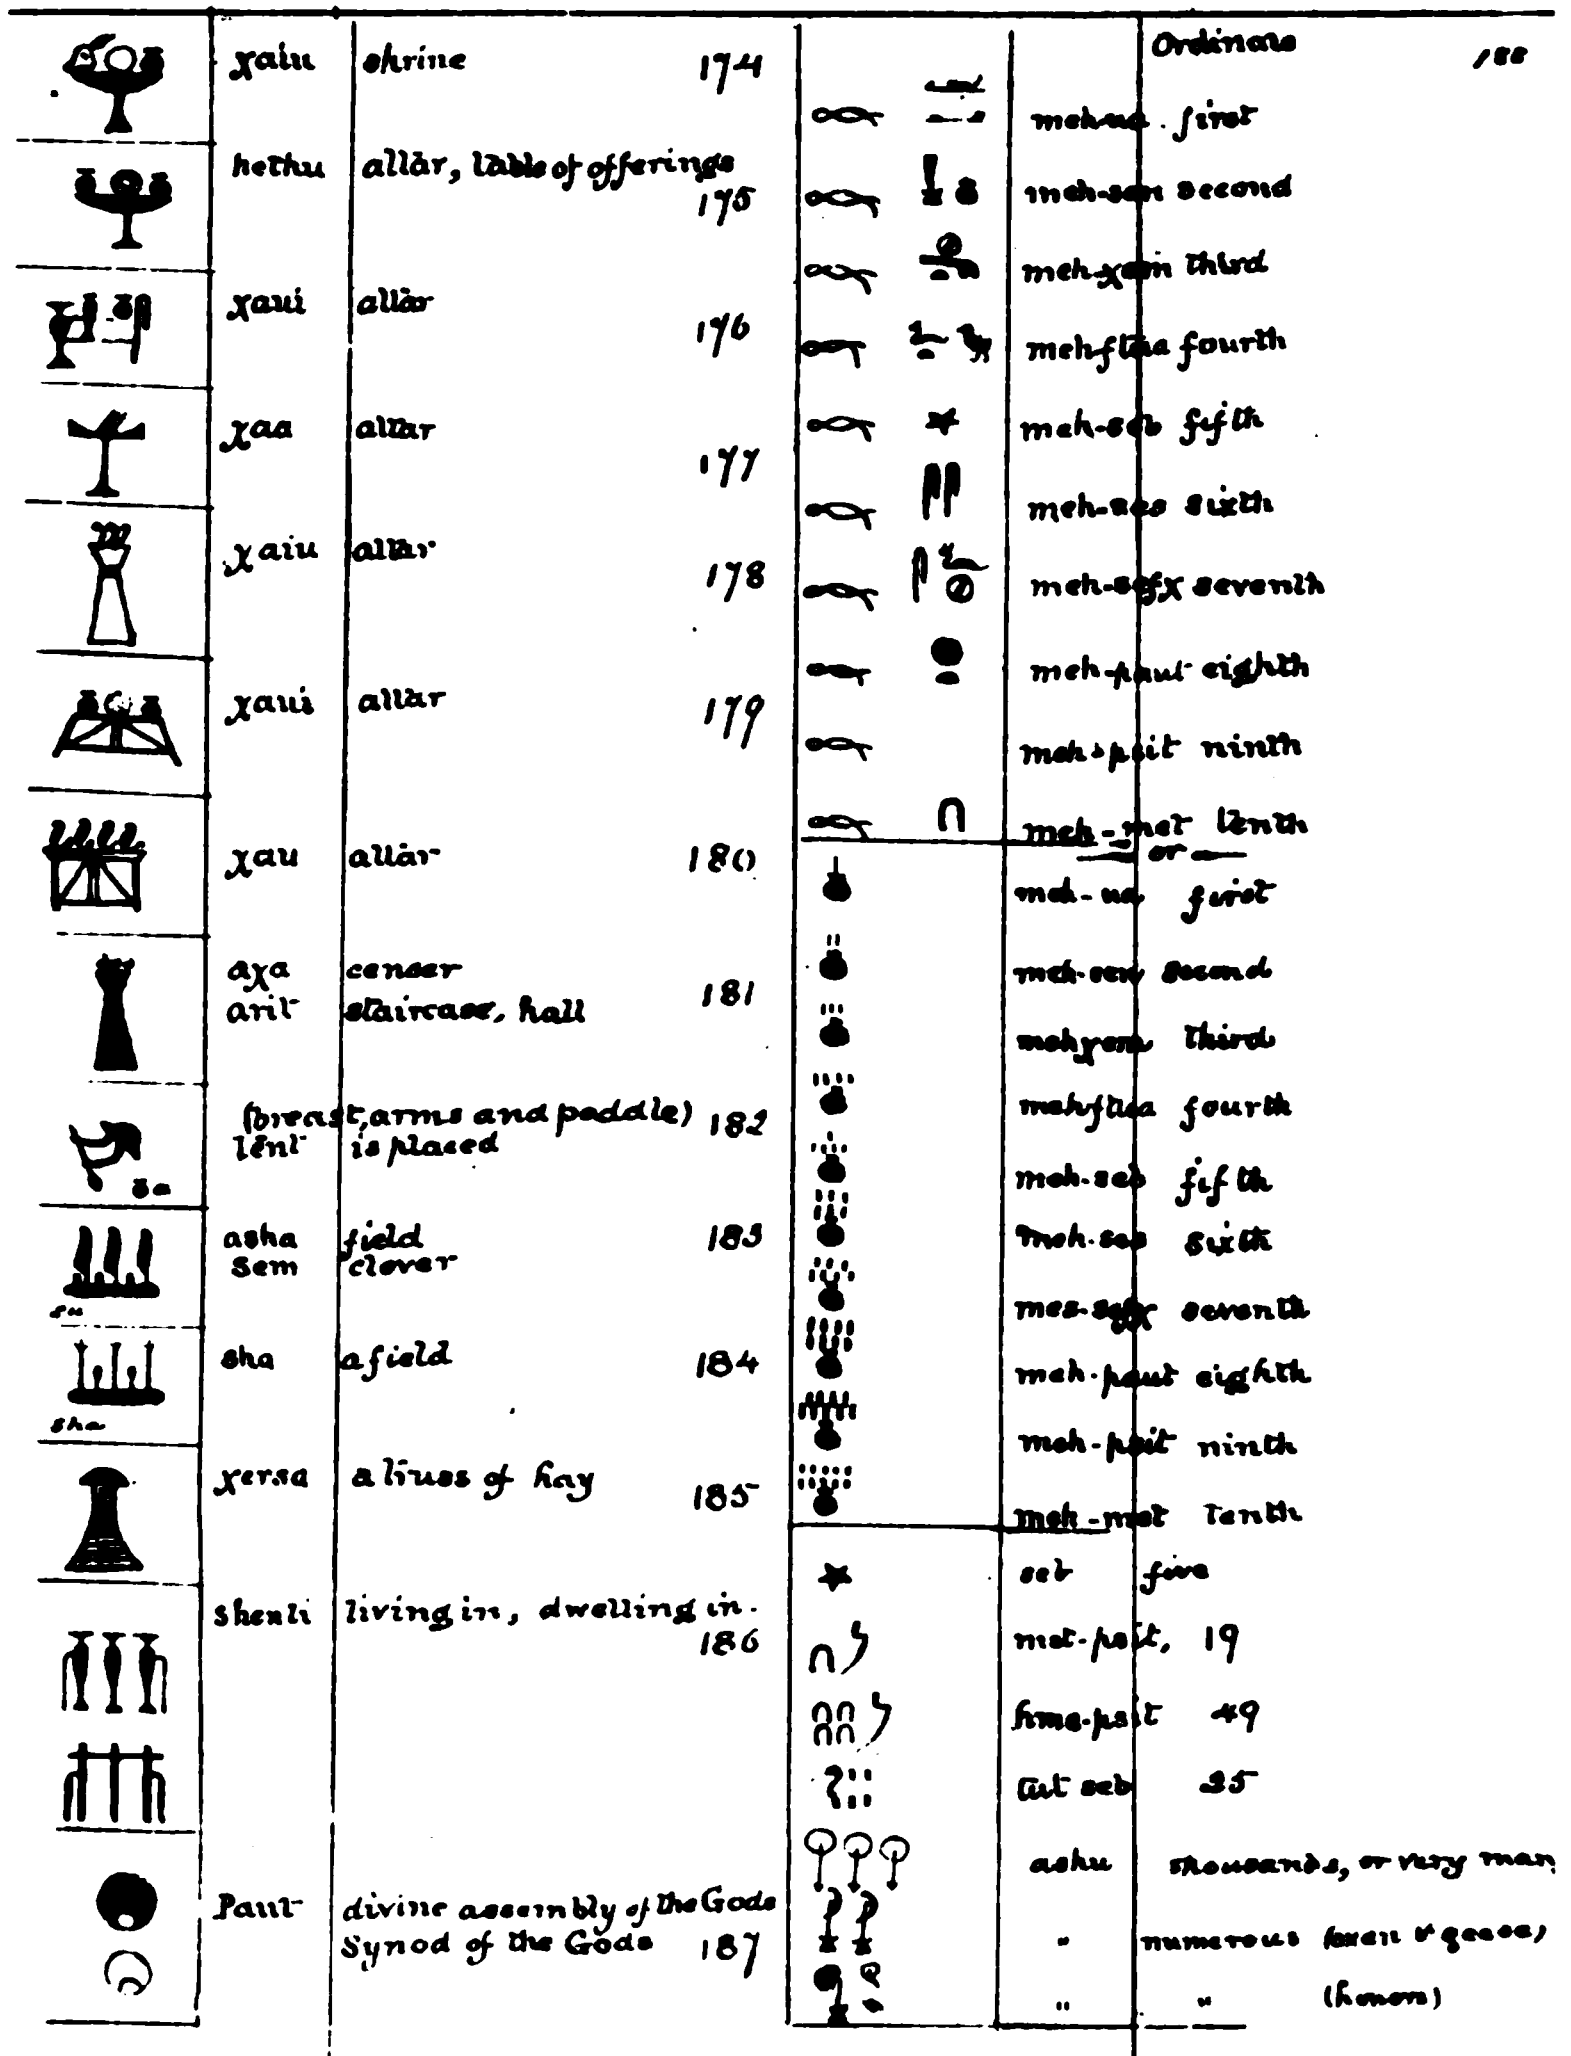 χaiu shrine 174
hethu altar, table of offerings 175
χaui altar 176
χaa altar 177
χaiu altar 178
χaui altar 179
χau altar 180
aχa censer
arit staircase, hall 181
(breast, arms and paddle) 182
tent is placed
asha field 183
sem clover
sha a field 184
sha
χersa a truss of hay 185
shenti living in, dwelling in. 186
Paut divine assembly of the Gods
Synod of the Gods 187
Ordinals 188
meh-ua first
meh-sen second
meh-χem third
meh-ftua fourth
meh-seb fifth
meh-sas sixth
meh-sefχ seventh
meh-paut eighth
meh-psit ninth
meh-met tenth
or
meh-ua first
meh-sen second
meh χem third
meh-ftua fourth
meh-seb fifth
meh-ses sixth
mes-sefχ seventh
meh-paut eighth
meh-psit ninth
meh-met tenth
seb five
met-psit, 19
hme-psit 49
tut seb
ashu thousands, or very man
" numerous oxen & geese,
" " (honors)